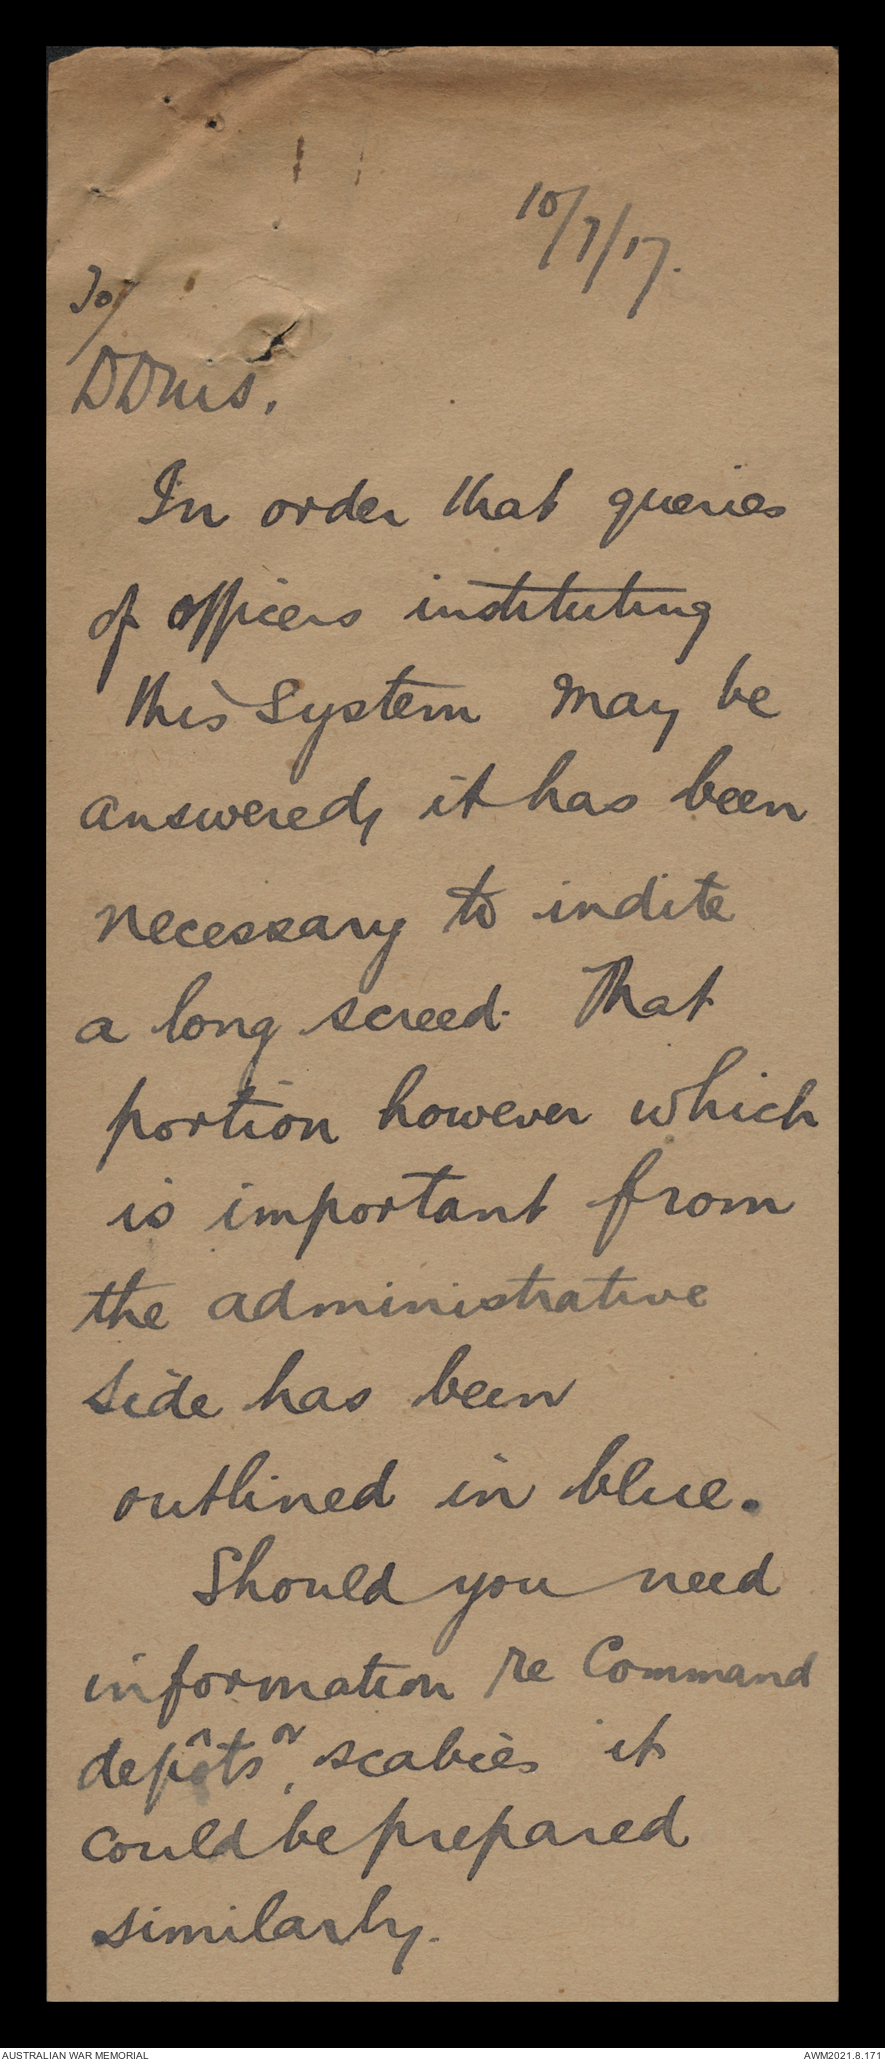 10/7/17.
To/
DDMS.
In order that queries
of officers instituting
this System may be
answered, it has been
necessary to indite
a long screed. That
portion however which
is important from
the administrative
side has been
outlined in blue.
Should you need
information re Command
depôts or scabies it
could be prepared
similarly.
AUSTRALIAN WAR MEMORIAL
AWM2021.8.171